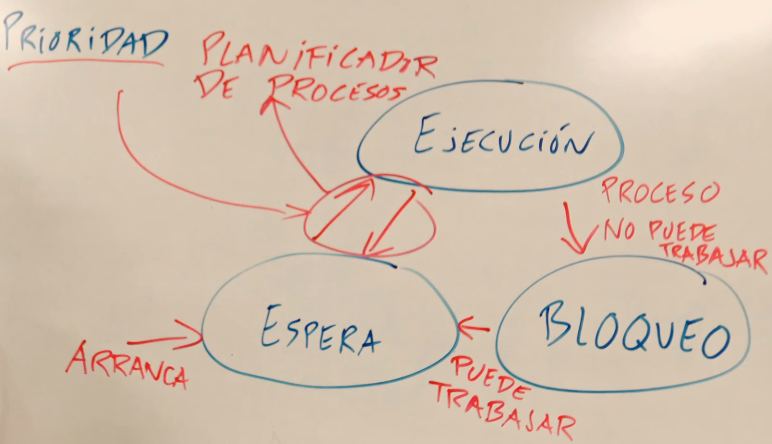 PRIORIDAD
PLANIFICADOR
DE PROCESOS
EJECUCIÓN
PROCESO
NO PUEDE
TRABAJAR
ESPERA
BLOQUEO
ARRANCA
PUEDE
TRABAJAR